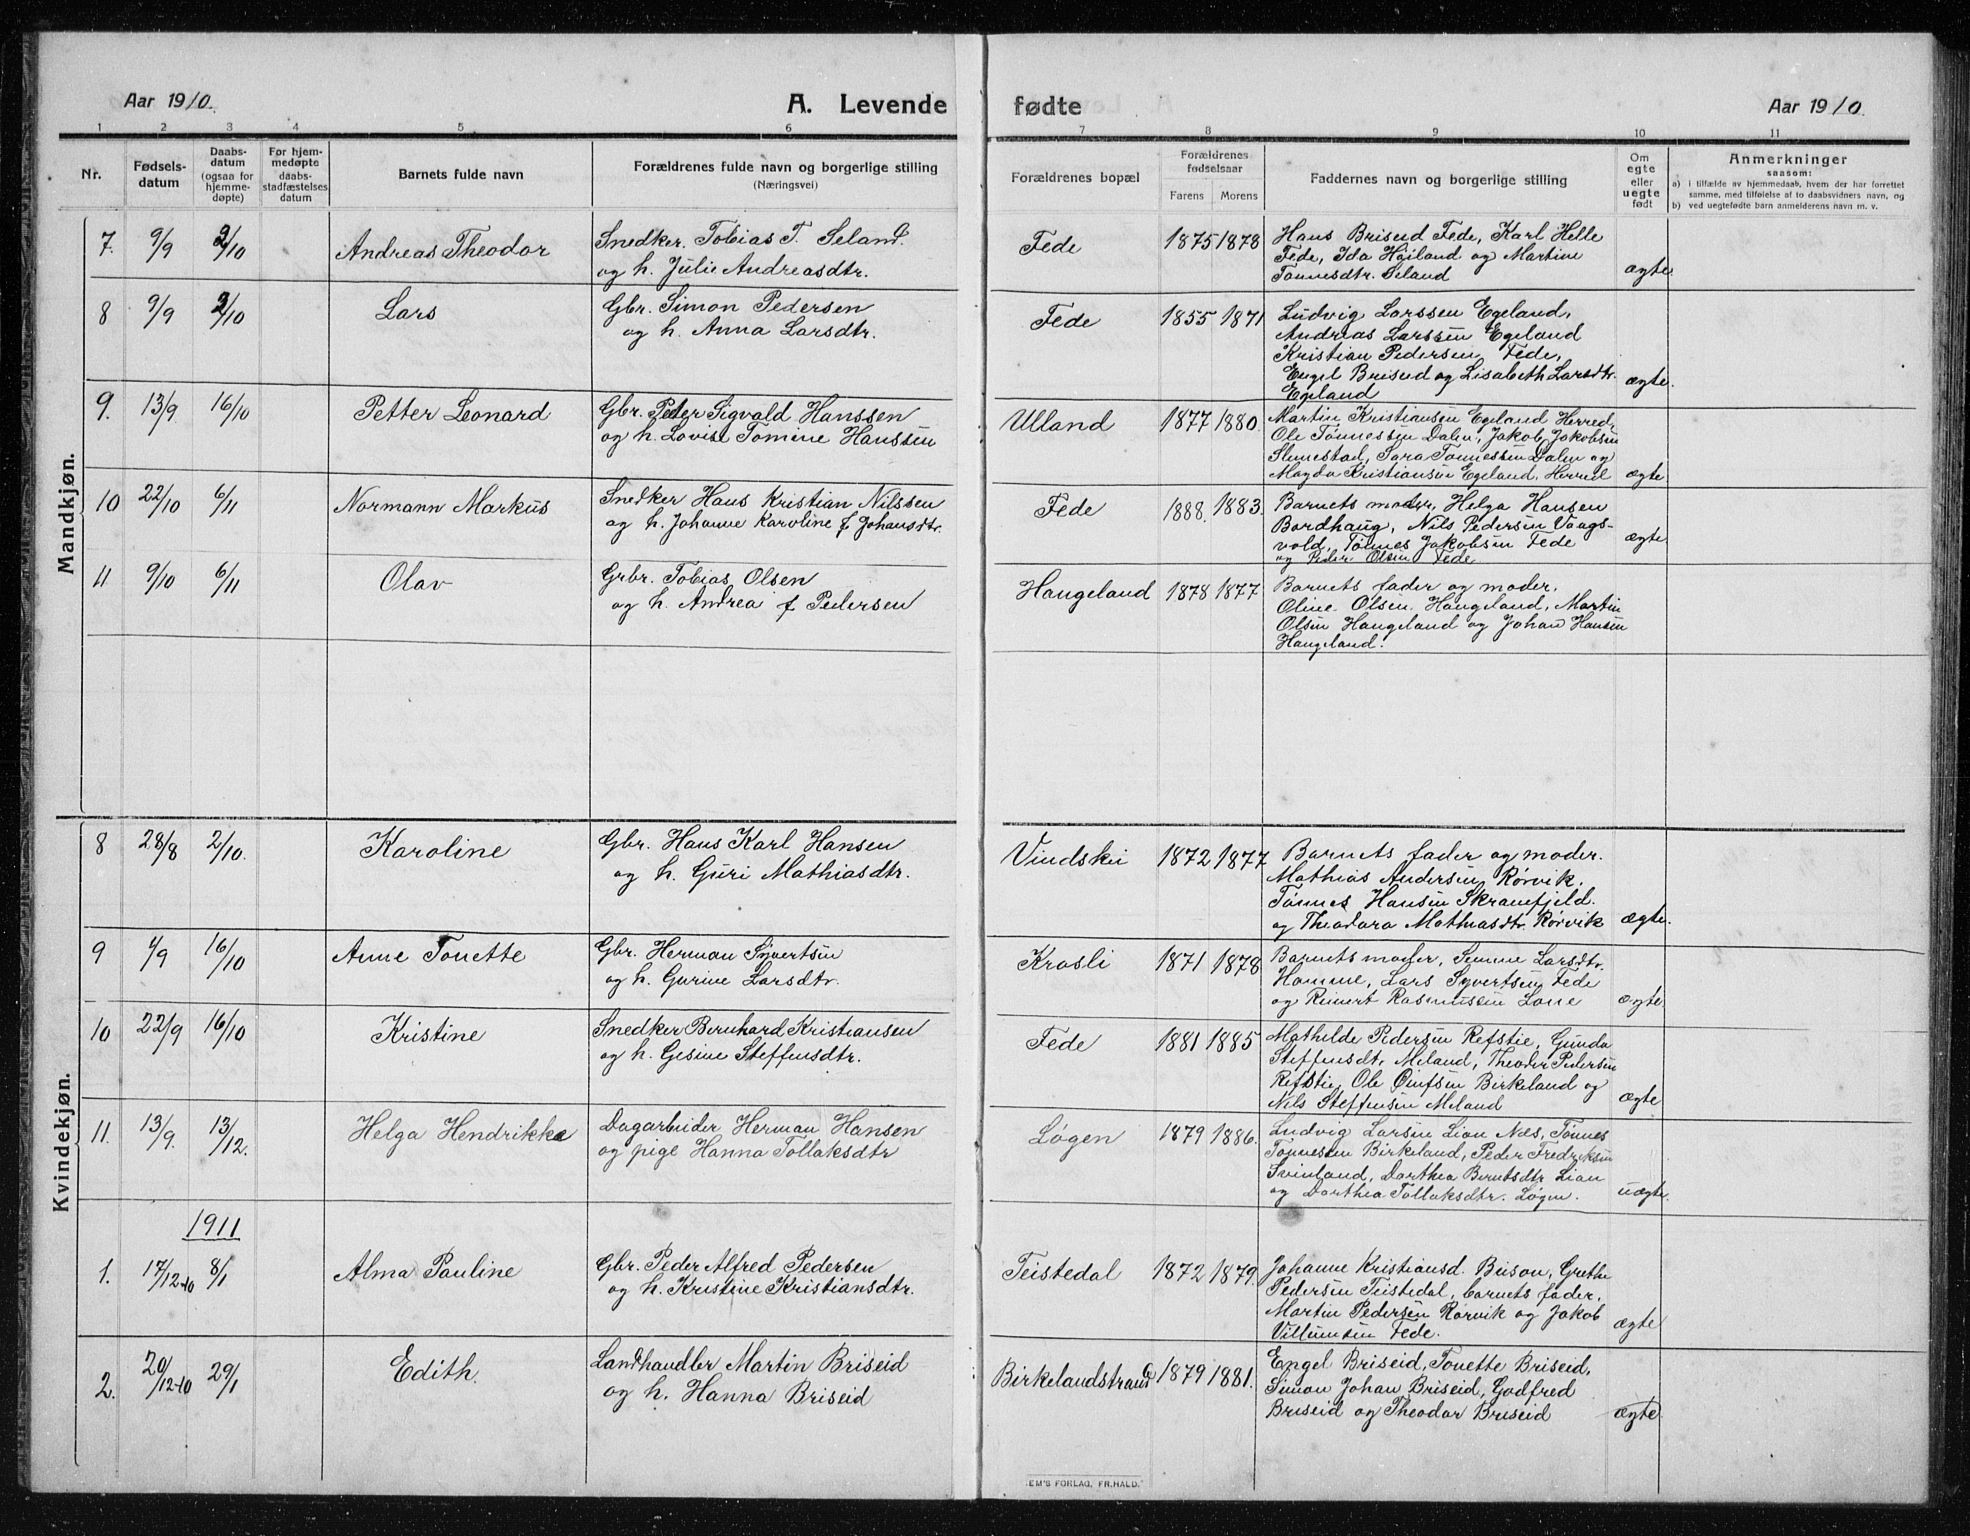 Aar 1910.
A. Levende fødte
Aar 1910.
1 2 3 4 5 6 7 8 9 10 11
Nr.
Fødsels-
datum
Daabs-
datum
(ogsaa for
hjemme-
døpte)
For hjem-
medøpte
daabs-
stadfæstelses
datum
Barnets fulde navn
Forældrenes fulde navn og borgerlige stilling
(Næringsvei)
Forældrenes bopæl
Forældrenes
fødselsaar
Farens Morens
Faddernes navn og borgerlige stilling
Om
egte
eller
uegte
født
Anmerkninger
saasom:
a) i tilfælde av hjemmedaab, hvem der har forrettet
samme, med tilføielse af to daabsvidners navn, og
b) ved uegtefødte barn anmelderens navn m. v.
Mandkjøn.
7. 9/9 2/10 Andreas Theodor
Snedker. Tobias T. Seland.
og h. Julie Andreasdtr.
Fede 1875 1878
Hans Briseid Fede, Karl Helle
Fede, Ida Høiland og Martine
Tønnesdtr. Seland
ægte
8 9/9 2/10 Lars
Gbr. Simon Pedersen
og h. Anna Larsdtr.
Fede 1855 1871
Ludvig Larssen Egeland,
Andreas Larssen Egeland
Kristian Pedersen Fede,
Engel Briseid og Lisabeth Larsdtr.
Egeland
ægte.
9. 13/9 16/10 Petter Leonard
Gbr. Peder Sigvald Hanssen
og h. Lovise Tomine Hanssen
Ulland 1877 1880.
Martin Kristiansen Egeland Herred,
Ole Tønnessen Dalen, Jakob Jakobsen
Slimestad, Sara Tønnessen Dalen og
Magda Kristiansen Egeland, Herred
ægte
10 22/10 6/11 Normann Markus
Snedker Hans Kristian Nilssen
og h. Johanne Karoline f Johansdtr.
Fede 1888. 1883.
Barnets moder, Helga Hansen
Bordhaug, Nils Pedersen Vaags-
vold, Tønnes Jakobsen Fede
og Peder Olsen Fede
ægte.
11 9/10 6/11 Olav
Grbr. Tobias Olsen
og h. Andrea f Pedersen
Haugeland 1878 1877
Barnets fader og moder.
Oline Olsen Haugeland, Martin
Olsen Haugeland og Johan Hansen
Haugeland.
Kvindekjøn.
8 28/8 2/10. Karoline
Gbr. Hans Karl Hansen
og h. Guri Mathiasdtr.
Vindskei 1872 1877
Barnets fader og moder.
Mathias Andersen Rørvik.
Tønnes Hansen Skranefjeld.
og Theodora Mathiasdtr. Rørvik
ægte.
9 4/9 16/10 Anne Tonette
Gbr. Herman Sivertsen
og h. Gurine Larsdtr.
Krosli 1871 1878
Barnets moder, Semine Larsdtr.
Homme, Lars Syvertsen Fede
og Reinert Rasmussen Lone
ægte
10 22/9 16/10 Kristine
Snedker Bernhard Kristiansen
og h. Gesine Steffensdtr.
Fede 1881 1885
Mathilde Pedersen Refstie, Gunda
Steffensdt. Meland, Theodor Pedersen
Refstie, Ole Birkeland og
Nils Steffensen Meland
ægte
11. 13/9. 13/12. Helga Hendrikke
Dagarbeider Herman Hansen
og pige Hanna Tollaksdtr
Løgen 1879 1886.
Ludvig Larsen Lian Næs, Tønnes
Tønnesen Birkeland, Peder Fredriksen
Svinland, Dorthea Berntsdtr Lian
og Dorthea Tollaksdtr. Løgen.
uægte.
1911
1. 17/12-10 8/1 Alma Pauline
Gbr. Peder Alfred Pedersen
og h. Kristine Kristiansdtr.
Teistedal 1872 1879.
Johanne Kristiansd. Grethe
Pedersen Teistedal, barnets fader,
Martin Pedersen Rørvik og Jakob
Villumsen Fede.
ægte
2. 20/12-10 29/1 Edith.
Landhandler Martin Briseid
og h. Hanna Briseid
Birkelandstrand 1879 1881.
Engel Briseid, Tonette Briseid,
Simon Johan Briseid, Godfred
Briseid og Theodor Briseid
ægte
EM'S FORLAG, FR.HALD.